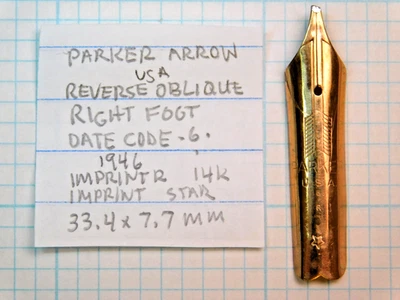 PARKER ARROW
USA
REVERSE OBLIQUE
RIGHT FOOT
DATE CODE .6.
1946
IMPRINTR 14K
IMPRINT STAR
33.4 x 7.7 mm
PARKER
U.S.A.